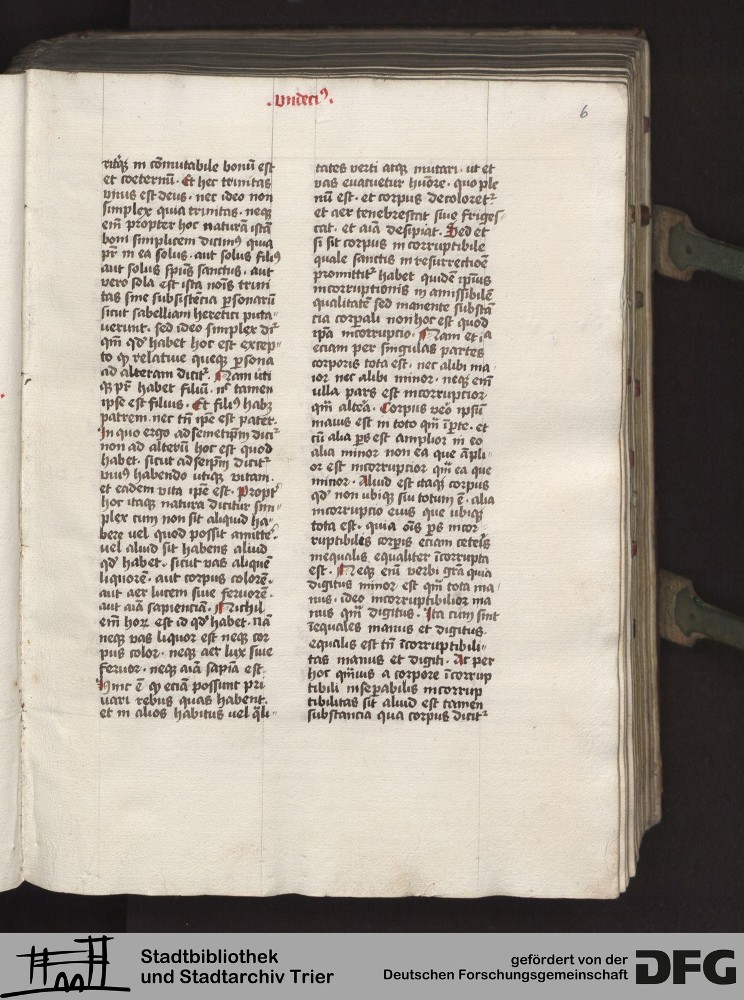 .Undeciꝰ.
6
ritqꝫ in cōmutabile bonū est
et coeternū. Et hec trinitas
vnius est deus. nec ideo non
simplex quia trinitas. neqꝫ
em̄ propter hoc naturā istā
boni simplicem dicimꝰ quia
pr̄ in ea solus. aut solus filiꝰ
aut solus spūs sanctus. aut
vero sola est ista nōis trini
tas sine subsistēcia ꝑsonarū
sicut sabelliani heretici puta⸗
uerunt. sed ideo simplex dr̄
qm̄ qd̓ habet hoc est excep⸗
to ꝙ relatiue queqꝫ ꝑsona
ad alteram dicit᷑. Nam uti
qꝫ pr̄ habet filiū. nͨ tamen
ipse est filius. Et filiꝰ habꝫ
patrem. nec tn̄ ip̄e est pater.
In quo ergo ad semetip̄m dici᷑
non ad alterū hoc est quod
habet. sicut ad seip̄m dicit᷑
viuꝰ habendo utiqꝫ vitam.
et eadem vita ip̄e est. Propt̓
hoc itaqꝫ natura dicitur sim⸗
plex cum non sit aliquid ha⸗
bere vel quod possit amitte᷑.
vel aliud sit habens aliud
qd̓ habet. sicut vas aliquē
liquorē. aut corpus colorē.
aut aer lucem siue feruorē.
aut aīa sapienciā. Nichil
em̄ horꝝ est id qd̓ habet. nā
neqꝫ vas liquor est neqꝫ cor
pus color. neqꝫ aer lux siue
feruor. neqꝫ aīa sapīa est.
Hinc ē ꝙ eciā possunt pri
uari rebus quas habent.
et in alios habitus vel q̄li⸗
tates verti atqꝫ mutari. ut et
vas euacuetur hūore. quo ple
nū est. et corpus decoloret᷑
et aer tenebrescat siue friges⸗
cat. et aīa desipiat. Sed et
si sit corpus in corruptibile
quale sanctis in resurrectioē
promittit᷑ habet quidē ip̄ius
incorruptionis in amissibilē
qualitatē sed manente substā
cia corp̄ali non hoc est quod
ip̄a incorrupcio. Nam et īa
eciam per singulas partes
corporis tota est. nec alibi ma
ior nec alibi minor. neqꝫ em̄
ulla pars est incorruptior
qm̄ altēa. Corpus veo ipsū
maius est in toto qm̄ ī ꝑte. et
cū alia ꝑs est amplior in eo
alia minor non ea que āpli⸗
or est incorruptior qm̄ ea que
minor. Aliud est itaqꝫ corpus
qd̓ non ubiqꝫ sui totum ē. alia
incorrupcio eius que ubiqꝫ
tota est. quia oīs ꝑs incor
ruptibilis corꝑis eciam ceteīs
inequalis equaliter īcorrupta
est. Neqꝫ enī verbi grā quia
digitus minor est qm̄ tota ma
nus. ideo incorruptibilior ma
nus qm̄ digitus. Ita cum sint
īequales manus et digitus.
equalis est tn̄ īcorruptibili⸗
tas manus et digiti. Ac per
hoc qm̄uis a corpore īcorrup
tibili inseꝑabilis incorrup
tibilitas sit aliud est tamen
substancia qua corpus dicit᷑
Stadtbibliothek
und Stadtarchiv Trier
gefördert von der
Deutschen Forschungsgemeinschaft
DFG